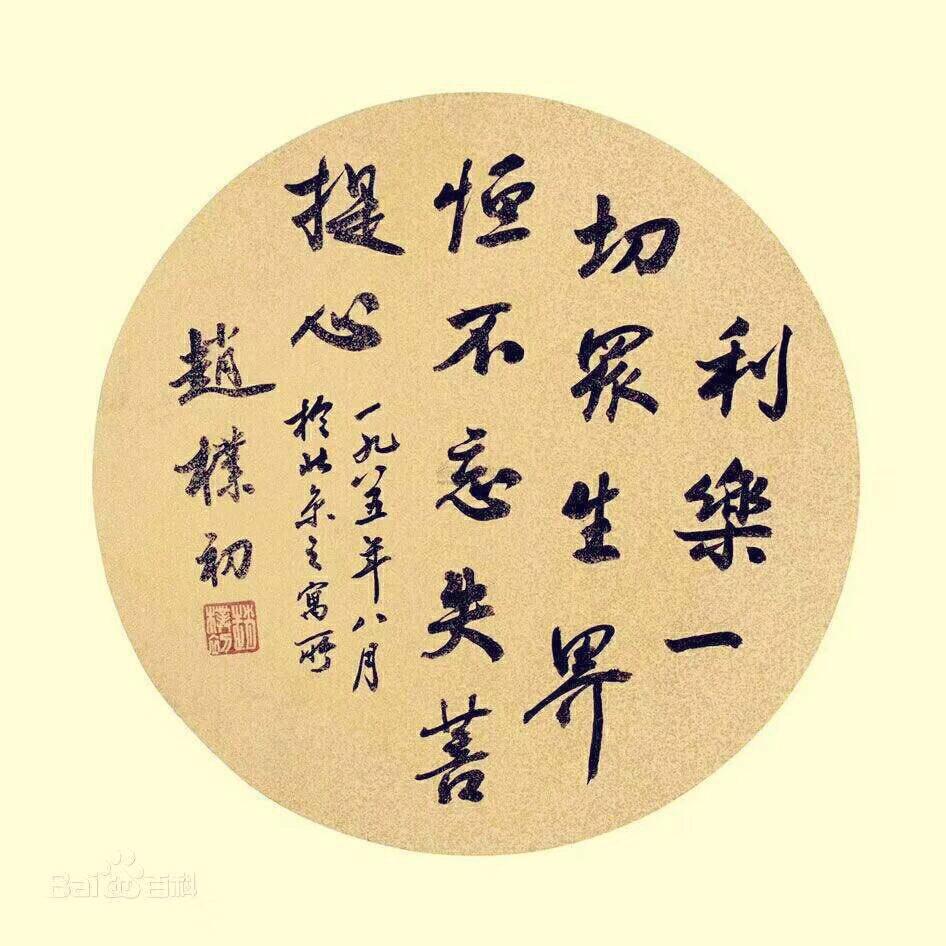 利樂一
切眾生界
恒不忘失菩
提心
一九八五年八月
於北京之寓所
趙樸初
趙樸初
Bai百科